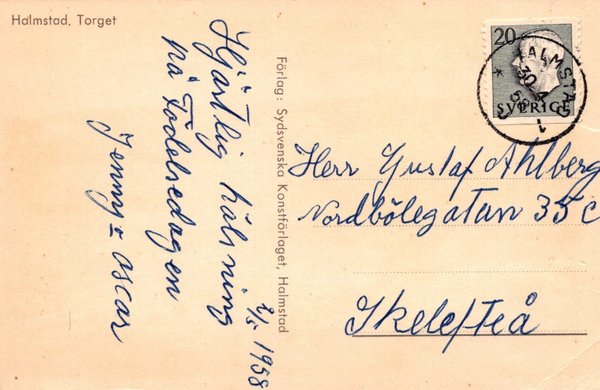 Halmstad, Torget
Hjärtlig hälsning
på Födelsedagen
2/5 1958
Jenny o Oscar
Förlag: Sydsvenska Konstförlaget, Halmstad
20
SVERIGE
HALMSTAD 1
30 4 58
Herr Gustaf Ahlberg
Nordbölegatan 35 C
Skelefteå